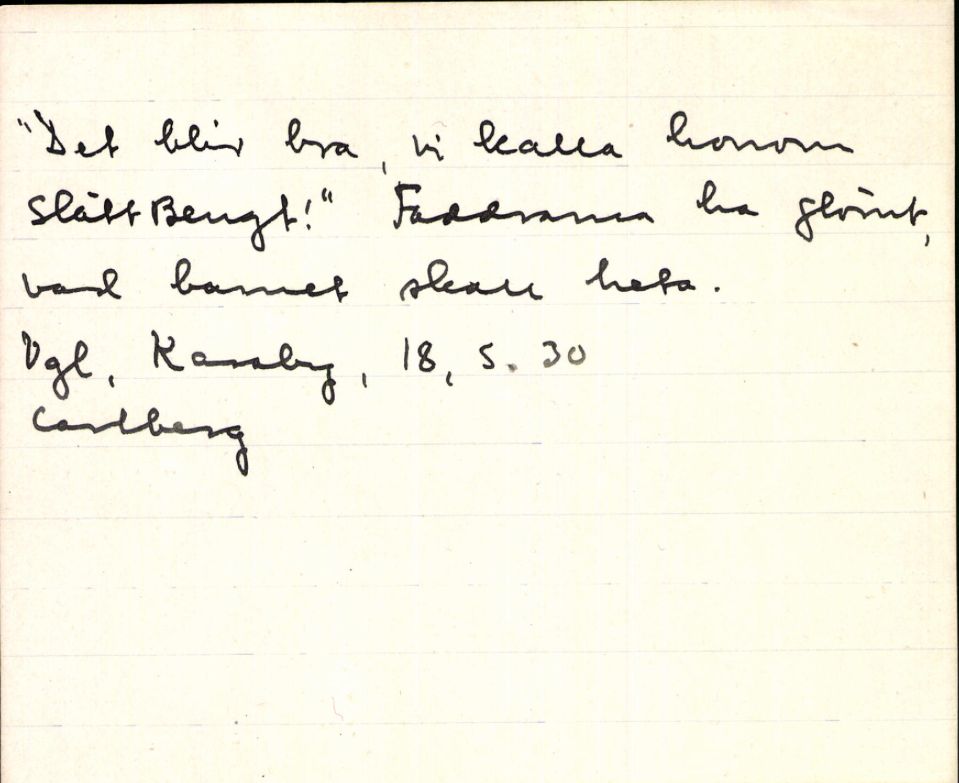 "Det blir bra, vi kalla honom
slätt Bengt!" Faddrarna ha glömt,
vad barnet skall heta.
Vgl, Karaby, 18, 5. 30
Carlberg